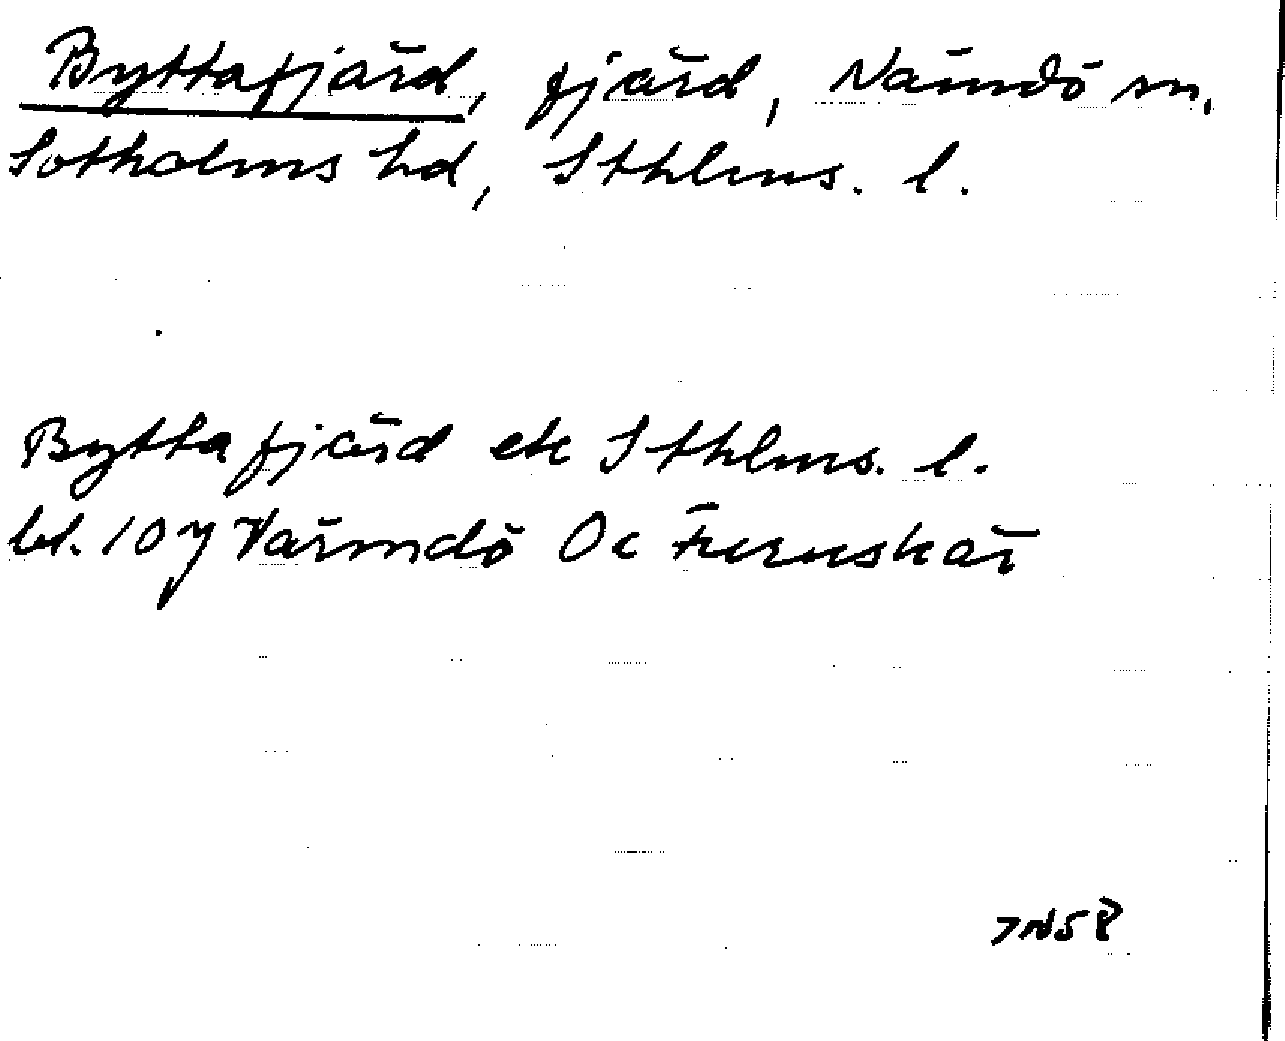 Byttafjärd, fjärd, Nämdö sn,
Sotholms hd, Sthlms. l.
Byttafjärd ek Sthlms. l.
bl. 107 Värmdö Oc